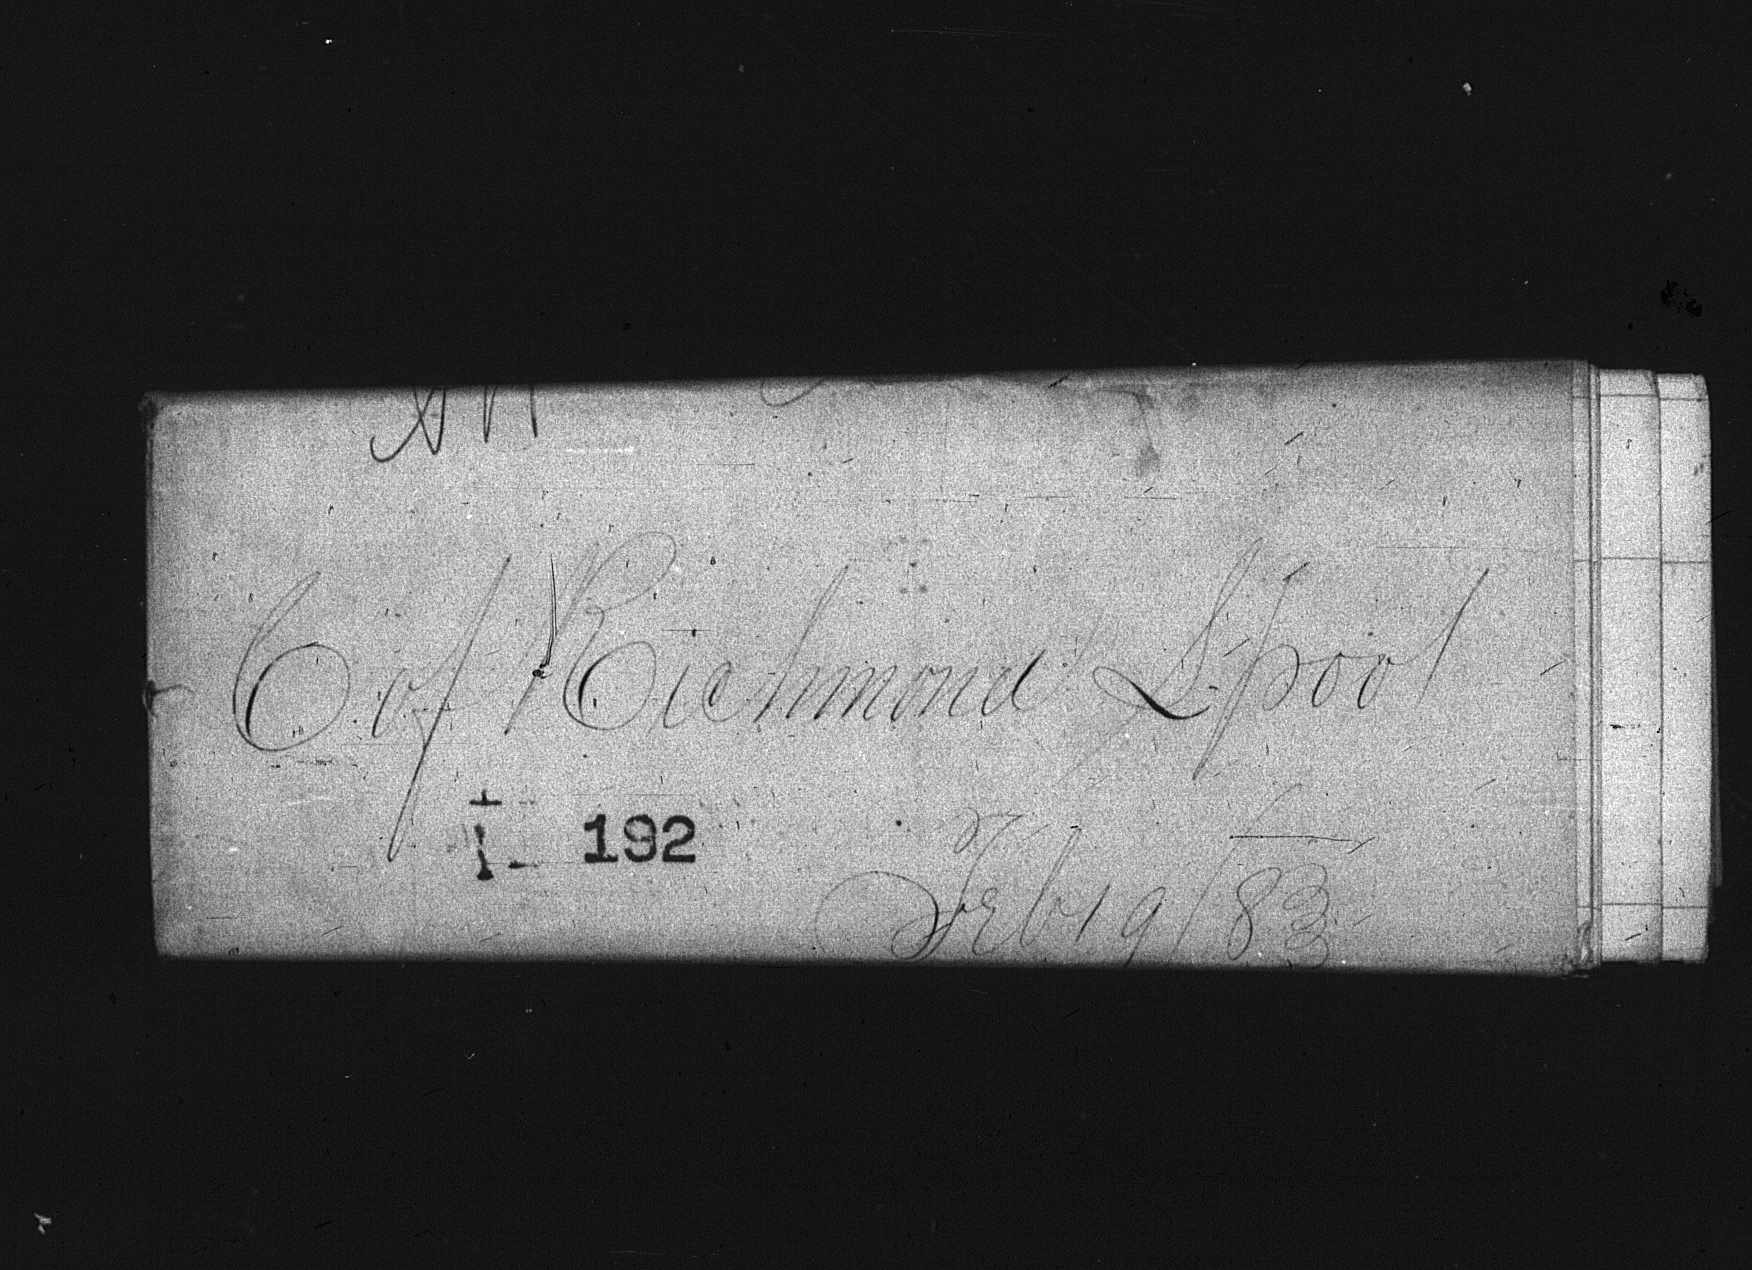 C of Richmond L'pool
192
Feb 19/83